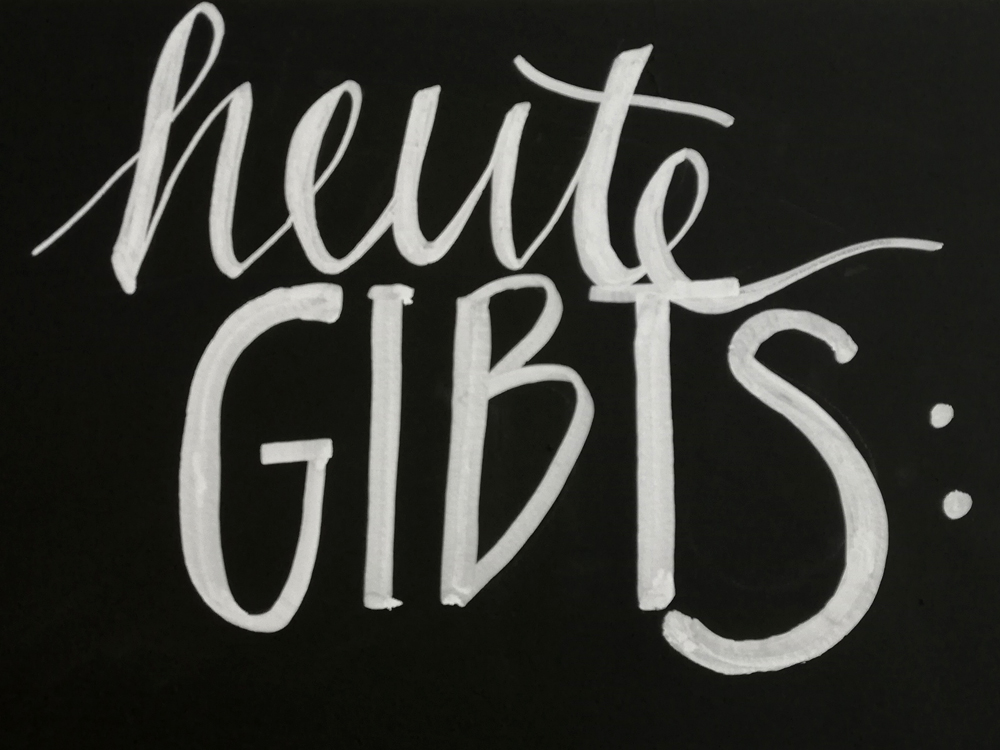 heute
GIBTS: